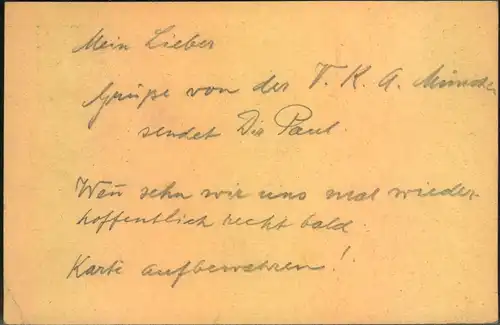 Mein Lieber
Grüße von der T. K. A. München
sendet Dir Paul.
Wen̄ sehn wir uns mal wieder
hoffentlich recht bald.
Karte aufbewahren!